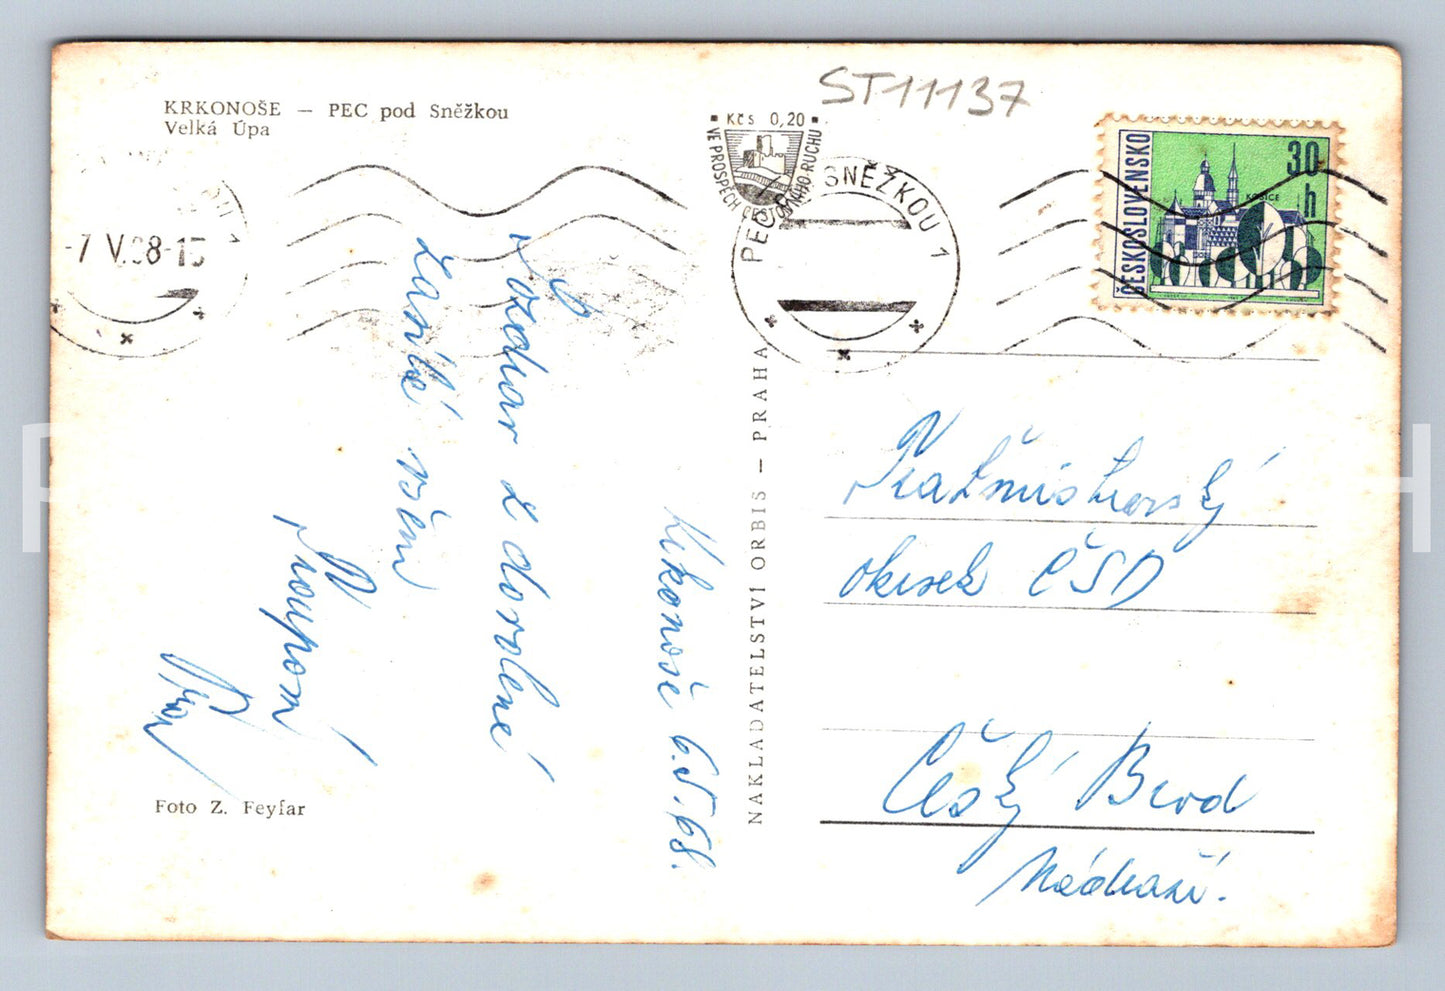 KRKONOŠE — PEC pod Sněžkou
Velká Úpa
ST11137
Kčs 0,20
VE PROSPĚCH CESTOVNÍHO RUCHU
PEC POD SNĚŽKOU 1
-7 V.68-15
ČESKOSLOVENSKO
30 h
KOŠICE
Krkonoše 6.5.68.
Pozdrav z dovolené
zasílá všem
Foto Z. Feyfar
NAKLADATELSTVÍ ORBIS — PRAHA
okrsek ČSD
Český Brod
nádraží.